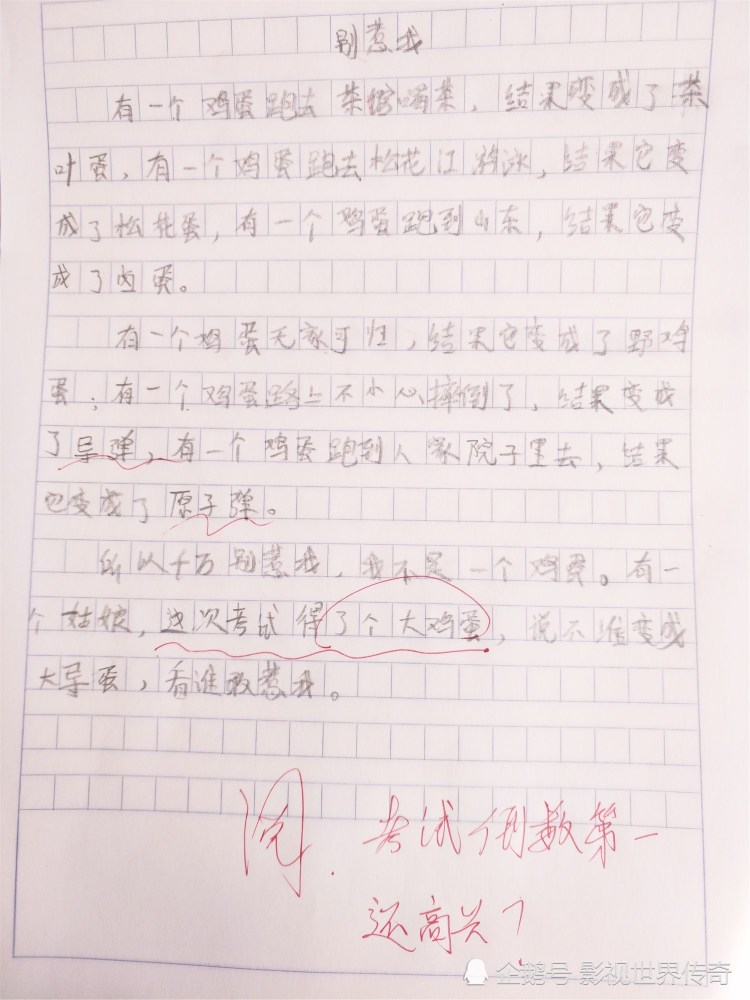 别惹我
有一个鸡蛋跑去茶馆喝茶，结果变成了茶
叶蛋，有一个鸡蛋跑去松花江游泳，结果它变
成了松花蛋，有一个鸡蛋跑到山东，结果它变
成了卤蛋。
有一个鸡蛋无家可归，结果它变成了野鸡
蛋；有一个鸡蛋路上不小心摔倒了，结果变成
了导弹，有一个鸡蛋跑到人家院子里去，结果
它变成了原子弹。
所以千万别惹我，我不是一个鸡蛋。有一
个姑娘，这次考试得了个大鸡蛋，说不准变成
大导蛋，看谁敢惹我。
阅.考试倒数第一
还高兴？
企鹅号 影视世界传奇